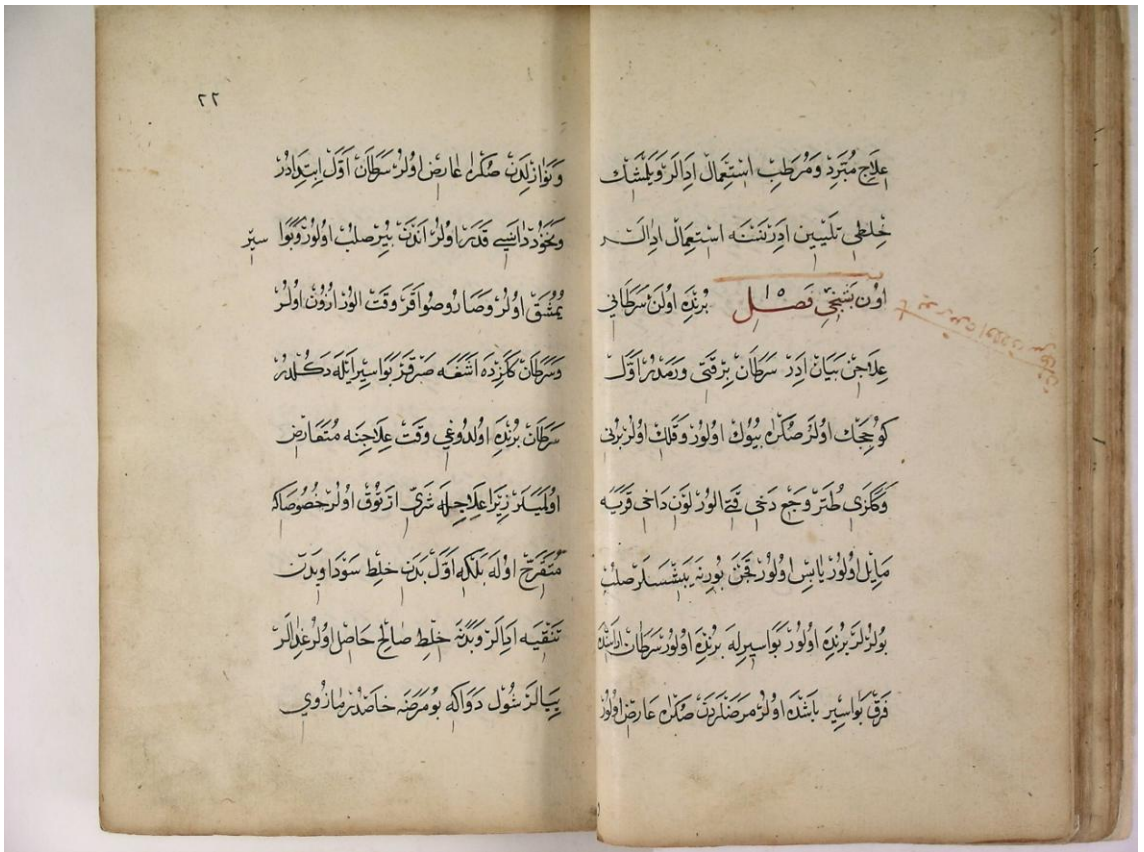 علاج مبرد ومرطب استعمال ايدالر ويلشك
خلطى تليين ايدر نسنه استعمال ايدالر
اون بشنجى فصل ١٥ برنده اولن سرطانى
علاجن بيان ايدر سرطان برقتى ورمدر اول
كوججك اولر صكره بيوك اولور وقلك اولر برنى
وكازى طتر وجع دخى قتى الور لون داخى قريه
مايل اولور يابس اولور قچن بورنه يبشسلر صلب
بولرلر برنده اولور بواسيرله برنده اولور سرطان اراسنده
فرق بواسير باشده اولر مرضلردن صكره عارض اولور
٢٢
ونوازلدن صكره عارض اولر سرطان اول ابتدادر
ونخود دانسى قدر اولر اندن بير صلب اولور وبوا سير
يمشق اولر وصارو صو اقر وقت الور اوزون اولر
وسرطان كازده اشغه صرقر بواسير ايله دكلدر
سرطان برنده اولدوغى وقت علاجنه متعارض
اولميلر زيرا علاجله شرى ارتوق اولر خصوصاكه
متقرح اوله بلكه اول بدن خلط سوداويدن
تنقيه ايدالر وبدنه خلط صالح حاصل اولر غدالر
ييالر شول دواكه بو مرضه خاصدر مازوى